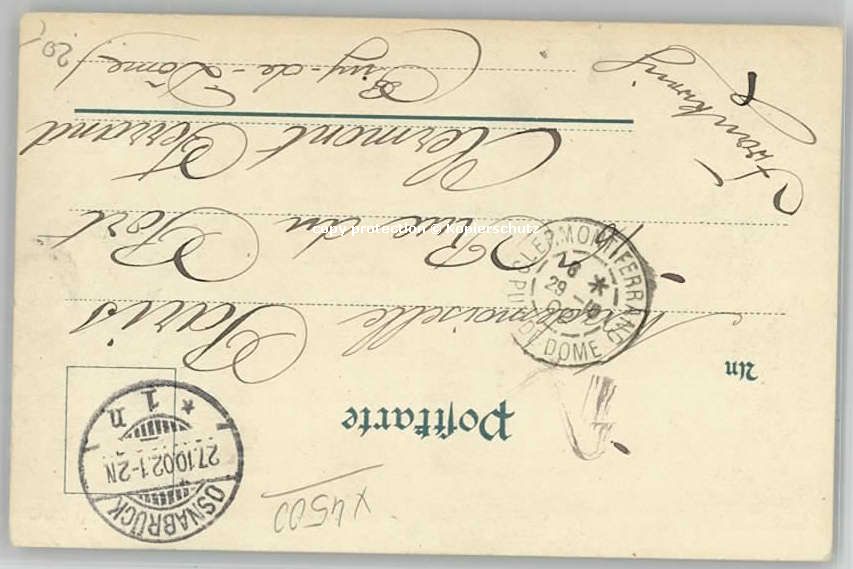 x4500
Postkarte
OSNABRÜCK
* 1 n
27.10.02.1-2N
An
Mademoiselle Paris
CLERMONT FERRAND
29 -10
PUY DE DOME
Rue du Port
Clermont Ferrand
Puy-de-Dôme
Frankreich
20,-
copy protection © Kopierschutz